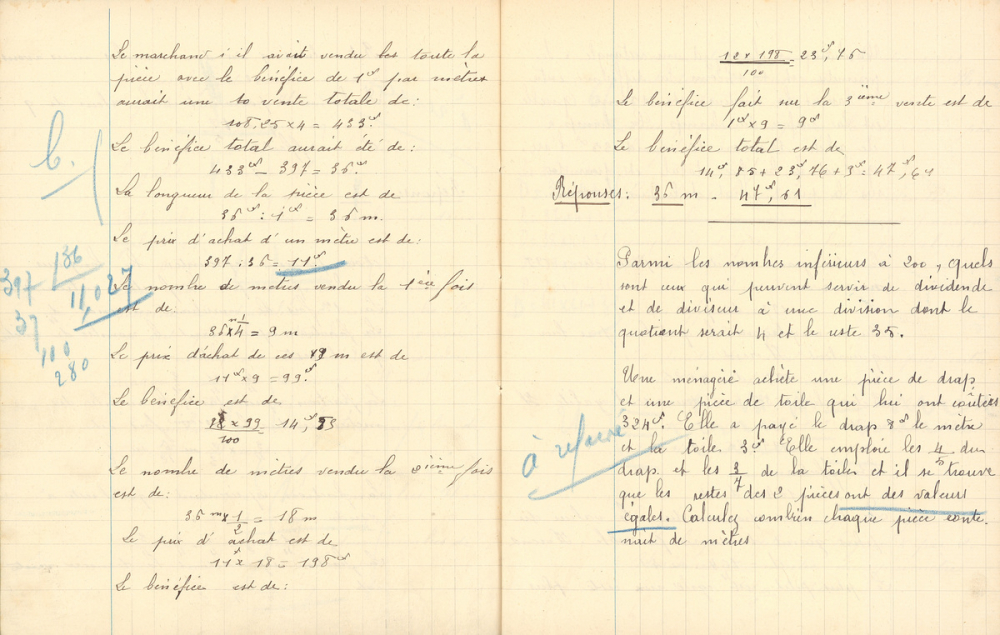 Le marchand s'il avait vendu les toute la
pièce avec le bénéfice de 1f par mètres
aurait une to vente totale de:
108,25 x 4 = 433f.
Le bénéfice total aurait été de:
433f - 397 = 36f.
La longueur de la pièce est de
36f : 1f = 36 m.
Le prix d'achat d'un mètre est de:
397 : 36 = 11f
Le nombre de mètres vendu la 1ère fois
est de:
36 m x 1/4 = 9 m
Le prix d'achat de ces 9 m est de
11f x 9 = 99f.
Le bénéfice est de
15 x 99 / 100 = 14f,85
Le nombre de mètres vendu la 2ième fois
est de:
36 m x 1/2 = 18 m
Le prix d'achat est de
11f x 18 = 198f
Le bénéfice est de:
b.
397 136
11,027
37
110
280
12 x 198 / 100 = 23f,76
Le bénéfice fait sur la 3ième vente est de
1f x 9 = 9f
Le bénéfice total est de
14f,85 + 23f,76 + 9f = 47f,61
Réponses: 36 m - 47f,61
Parmi les nombres inférieurs à 200, quels
sont ceux qui peuvent servir de dividende
et de diviseur à une division dont le
quotient serait 4 et le reste 35.
Une ménagère achète une pièce de drap
et une pièce de toile qui lui ont coûtées
324f. Elle a payé le drap 8f le mètre
et la toile 3f. Elle emploie les 4/5 du
drap et les 3/7 de la toile et il se trouve
que les restes des 2 pièces ont des valeurs
égales. Calculez combien chaque pièce conte-
nait de mètres
à refaire